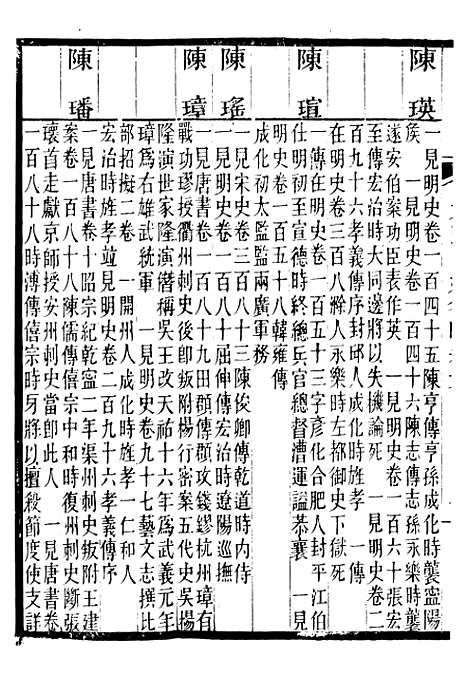 陳瑛 一見明史卷一百四十五陳亨傳亨孫成化時襲寧陽
侯 一見明史卷一百四十六陳志傳志孫永樂時襲
遂安伯案功臣表作英 一見明史卷一百六十張宏
至傳宏治時大同邊將以失機論死 一見明史卷二
百九十六孝義傳序封邱人成化時旌孝 一傳
在明史卷三百八滁人永樂時左都御史下獄死
陳瑄 一傳在明史卷一百五十三字彥化合肥人封平江伯
仕明初至宣德時終總兵官總督漕運謚恭襄 一見
明史卷一百五十八韓雍傳
成化初太監監兩廣軍務
陳瑤 一見宋史卷三百八十三陳俊卿傳乾道時內侍
一見明史卷一百八十屈伸傳宏治時遼陽巡撫
陳璋 一見唐書卷一百八十九田頵傳頵攻錢鏐杭州璋有
戰功璆授衢州刺史後卽叛附楊行密案五代史吳揚
隆演世家隆演僭稱吳王改天祐十六年爲武義元年
璋爲右雄武統軍 一見明史卷九十七藝文志撰比
部招擬二卷 一開州人成化時旌孝一仁和人
宏治時旌孝竝見明史卷二百九十六孝義傳序
陳璠 一見唐書卷十昭宗紀乾寧二年渠州刺史叛附王建
案卷一百八十八陳儒傳僖宗中和時復州刺史斷張
瓌首走獻京師授安州刺史當卽此人 一見唐書卷
一百八十八時溥傳僖宗時牙將以擅殺節度使支詳